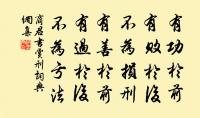 有功於前
有敗於後
不為損刑
有善於前
有過於後
不為亏法
商君書賞刑詞典
網集